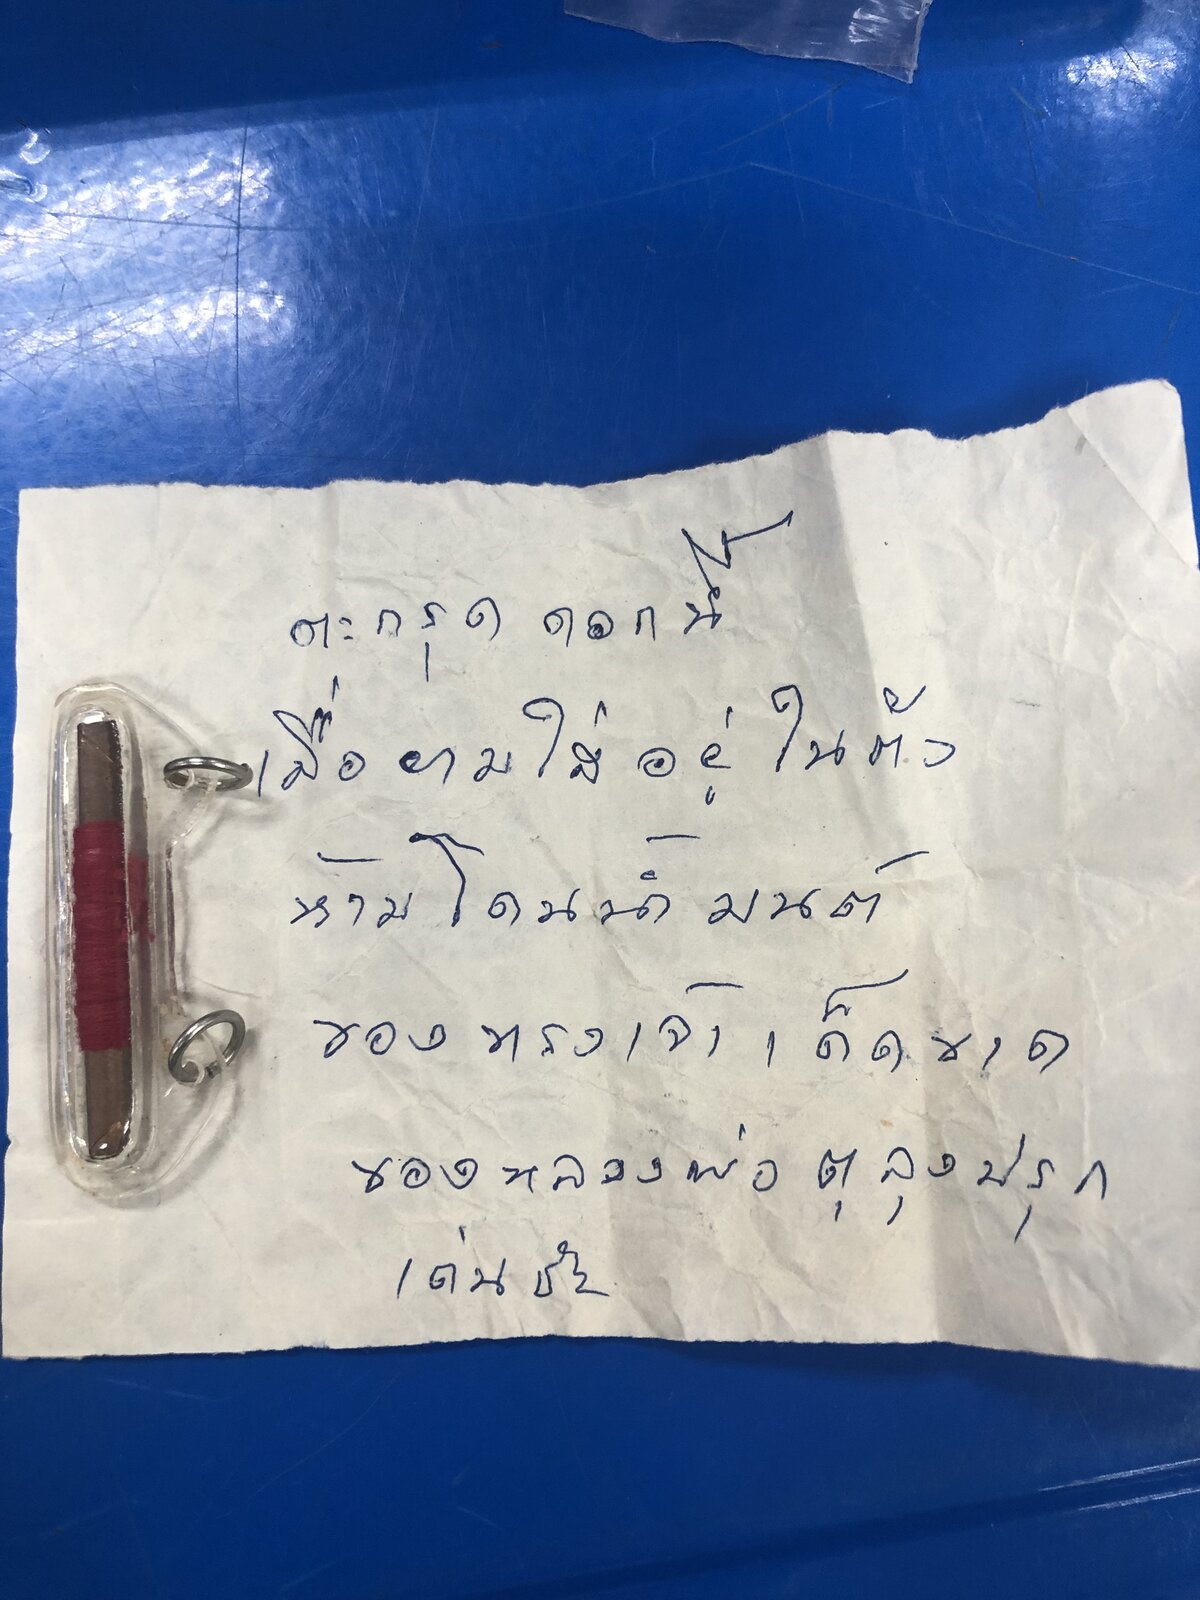 ตะกรุด ดอกนี้
เมื่อยามใส่อยู่ในตัว
ห้ามโดนน้ำมนต์
ของทรงเจ้าเด็ดขาด
ของหลวงพ่อ ตุลุงปรุก
เด่นชัย